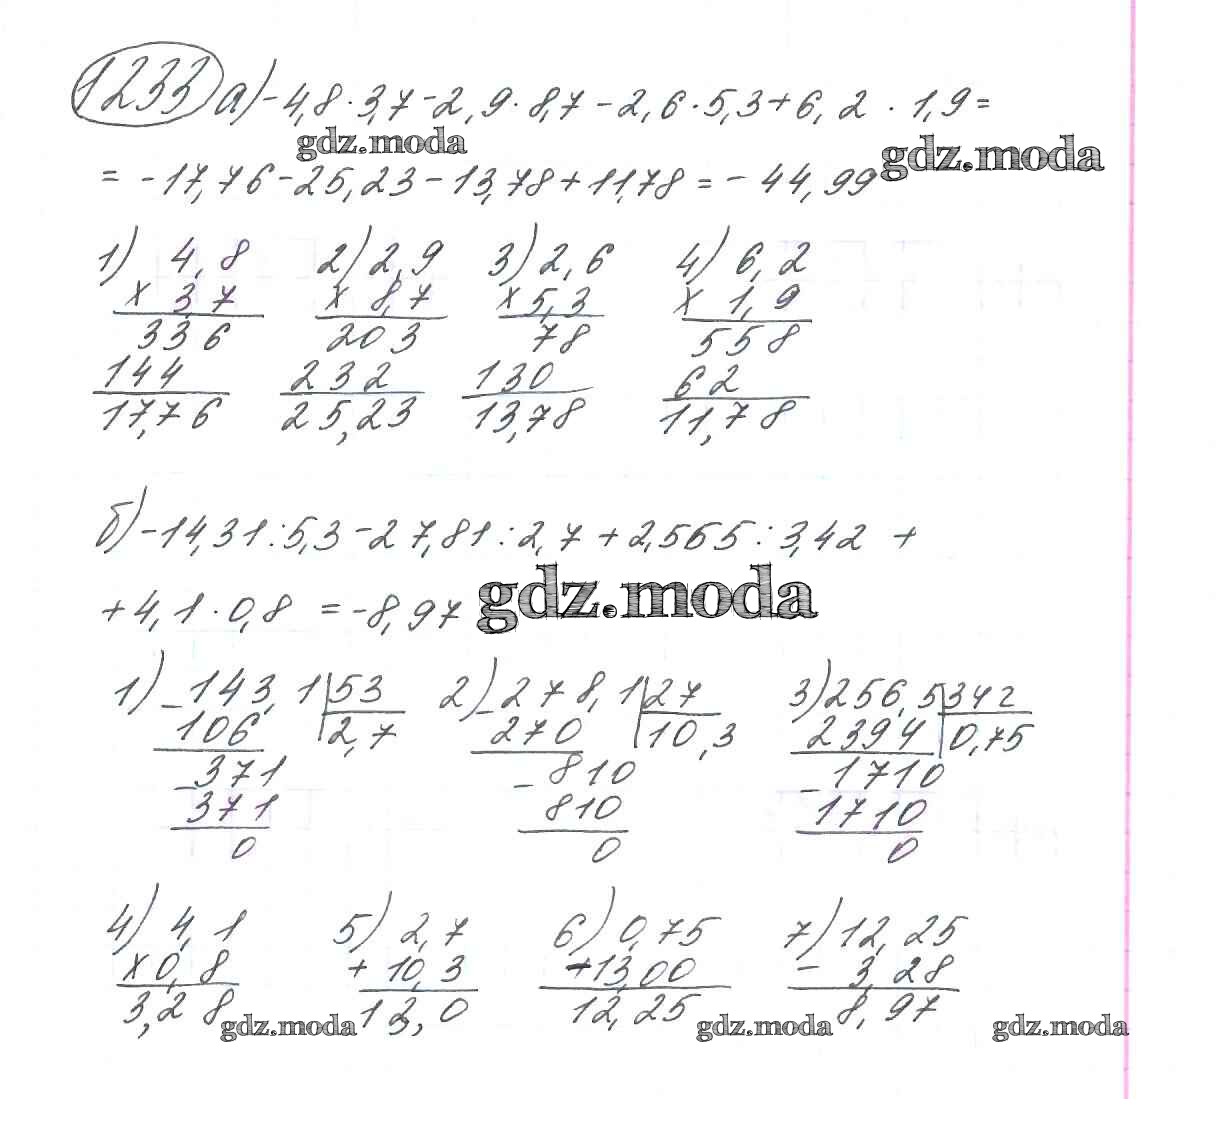 1233 а) -4,8 · 3,7 - 2,9 · 8,7 - 2,6 · 5,3 + 6,2 · 1,9 =
gdz.moda gdz.moda
= -17,76 - 25,23 - 13,78 + 11,78 = -44,99
1) 4,8 2) 2,9 3) 2,6 4) 6,2
x 3,7 x 8,7 x 5,3 x 1,9
336 203 78 558
144 232 130 62
17,76 25,23 13,78 11,78
б) -14,31 : 5,3 - 27,81 : 2,7 + 2,565 : 3,42 +
+ 4,1 · 0,8 = -8,97 gdz.moda
1) -143,1 | 53 2) -278,1 | 27 3) 256,5 | 342
106 | 2,7 270 | 10,3 2394 | 0,75
-371 -810 -1710
371 810 1710
0 0 0
4) 4,1 5) 2,7 6) 0,75 7) 12,25
x 0,8 + 10,3 +13,00 - 3,28
3,28 13,0 12,25 8,97
gdz.moda gdz.moda gdz.moda